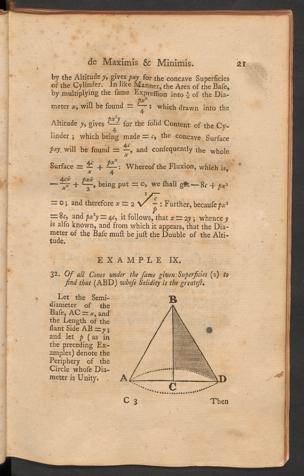 de Maximis & Minimis. 21
by the Altitude y, gives pxy for the concave Superficies
of the Cylinder. In like Manner, the Area of the Base,
by multiplying the same Expression into ¼ of the Dia-
meter x, will be found = px²/4; which drawn into the
Altitude y, gives px²y/4 for the solid Content of the Cy-
linder; which being made = c, the concave Surface
pxy will be found = 4c/x, and consequently the whole
Surface = 4c/x + px²/4: Whereof the Fluxion, which is,
— 4cẋ/x² + pxẋ/2, being put = 0, we shall get — 8c + px³
= 0; and therefore x = 2 ∛(c/p): Further, because px³
= 8c, and px²y = 4c, it follows, that x = 2y; whence y
is also known, and from which it appears, that the Dia-
meter of the Base must be just the Double of the Alti-
tude.
EXAMPLE IX.
32. Of all Cones under the same given Superficies (s) to
find that (ABD) whose Solidity is the greatest.
Let the Semi-
diameter of the
Base, AC = x, and
the Length of the
slant Side AB = y;
and let p (as in
the preceding Ex-
amples) denote the
Periphery of the
Circle whose Dia-
meter is Unity.
B
A
C
D
C 3 Then